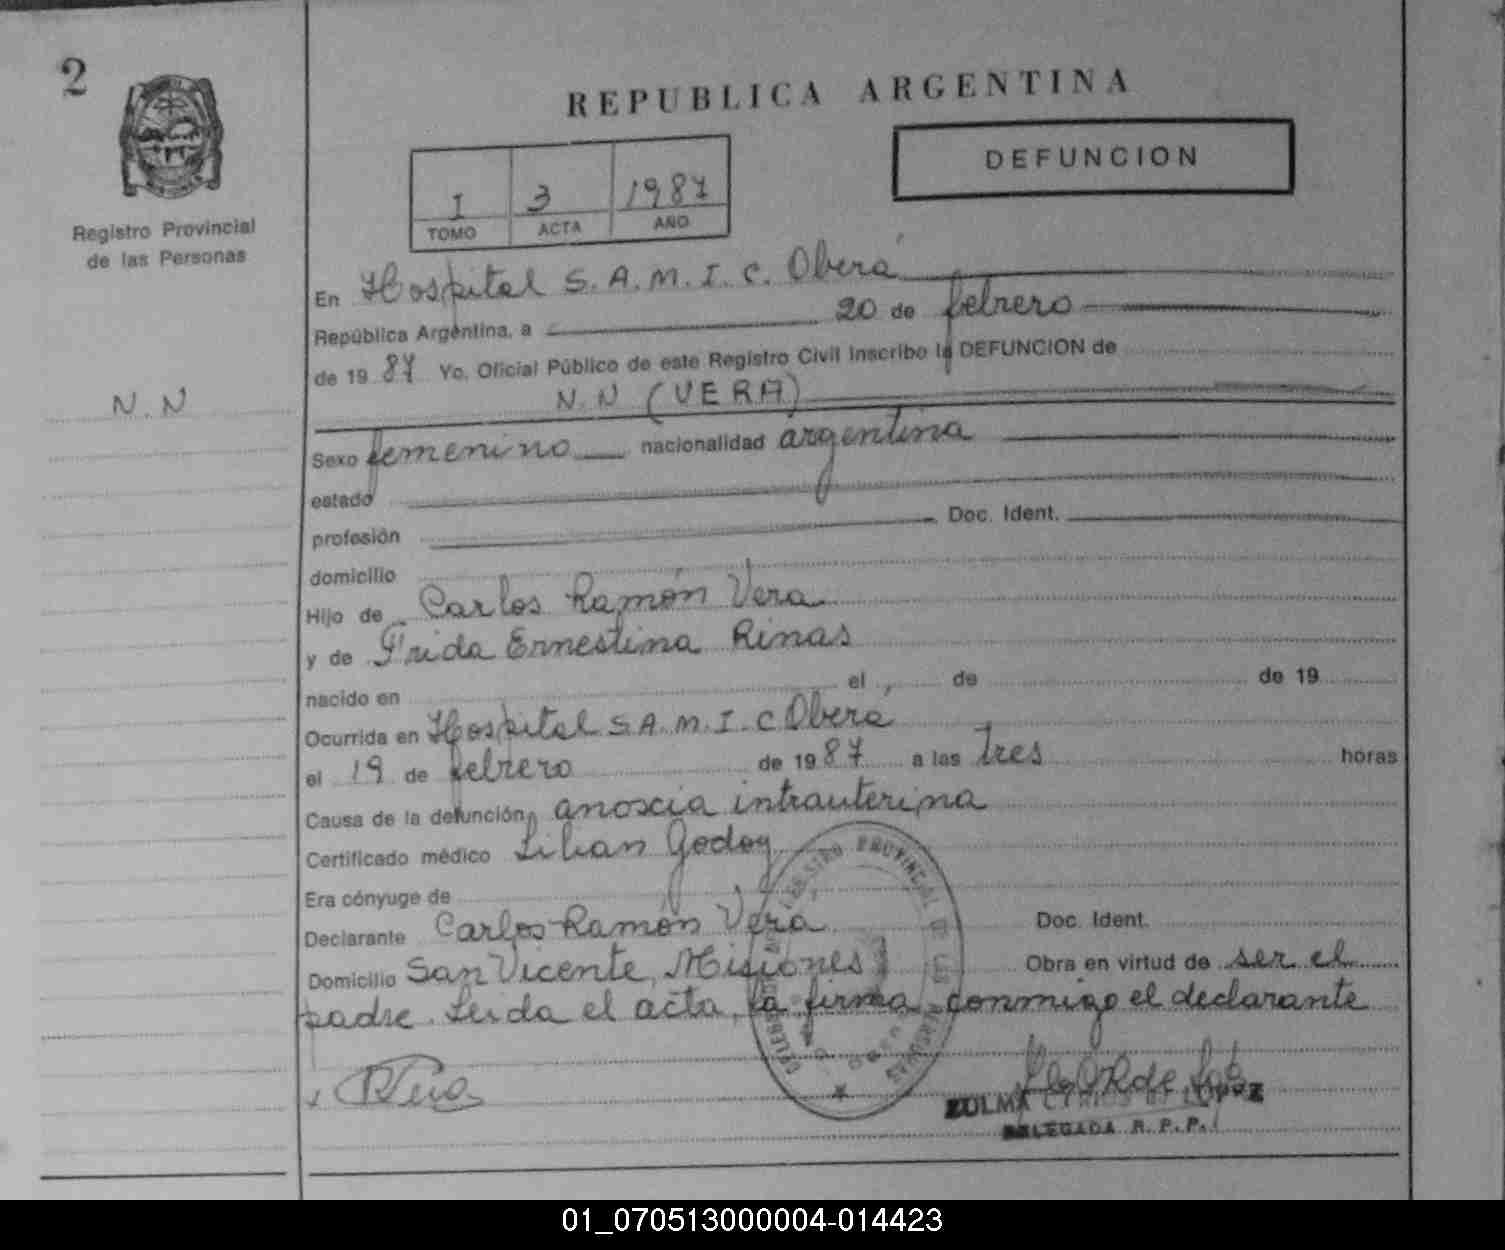 2
REPUBLICA ARGENTINA
DEFUNCION
I 3 1987
TOMO ACTA AÑO
Registro Provincial
de las Personas
N.N
En Hospital S.A.M.I.C. Oberá
República Argentina, a 20 de febrero
de 1987 Yo, Oficial Público de este Registro Civil Inscribo la DEFUNCION de
N.N (VERA)
Sexo femenino nacionalidad argentina
estado
profesión Doc. Ident.
domicilio
Hijo de Carlos Ramón Vera
y de Frida Ernestina Rinas
nacido en el , de de 19
Ocurrida en Hospital S.A.M.I.C Oberá
el 19 de febrero de 1987 a las tres horas
Causa de la defunción anoxia intrauterina
Certificado médico Lilian Godoy
Era cónyuge de
Declarante Carlos Ramón Vera Doc. Ident.
Domicilio San Vicente, Misiones Obra en virtud de ser el
padre. Leida el acta, la firma conmigo el declarante
REGISTRO PROVINCIAL DE LAS PERSONAS
ZULMA
DELEGADA R.P.P.
01_070513000004-014423